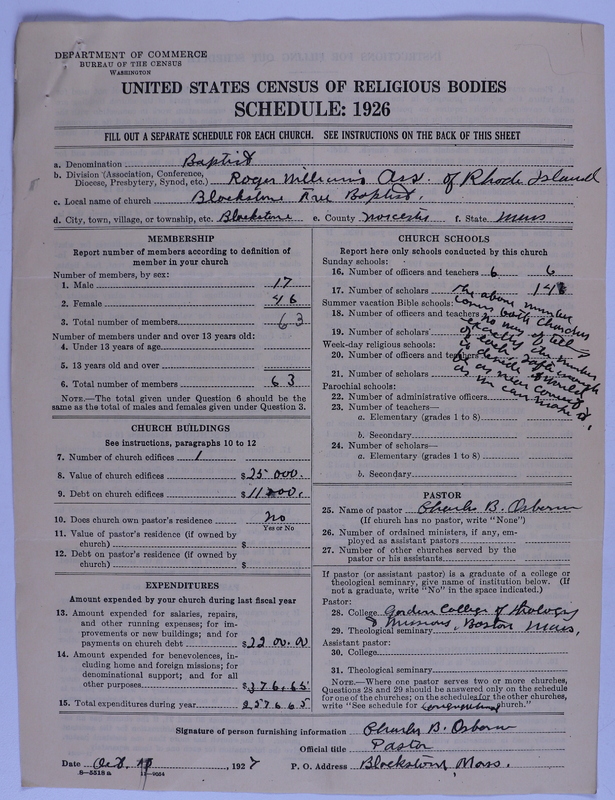 DEPARTMENT OF COMMERCE
BUREAU OF THE CENSUS
WASHINGTON
UNITED STATES CENSUS OF RELIGIOUS BODIES
SCHEDULE: 1926
FILL OUT A SEPARATE SCHEDULE FOR EACH CHURCH. SEE INSTRUCTIONS ON THE BACK OF THIS SHEET
a. Denomination Baptist
b. Division (Association, Conference,
Diocese, Presbytery, Synod, etc.) Roger Williams Ass. of Rhode Island
c. Local name of church Blackstone Free Baptist,
d. City, town, village, or township, etc. Blackstone e. County Worcester f. State Mass
MEMBERSHIP
Report number of members according to definition of
member in your church
Number of members, by sex:
1. Male 17
2. Female 46
3. Total number of members 63
Number of members under and over 13 years old:
4. Under 13 years of age
5. 13 years old and over
6. Total number of members 63
NOTE.—The total given under Question 6 should be the
same as the total of males and females given under Question 3.
CHURCH BUILDINGS
See instructions, paragraphs 10 to 12
7. Number of church edifices 1
8. Value of church edifices $25000.
9. Debt on church edifices $
10. Does church own pastor's residence No
Yes or No
11. Value of pastor's residence (if owned by
church) $
12. Debt on pastor's residence (if owned by
church) $
EXPENDITURES
Amount expended by your church during last fiscal year
13. Amount expended for salaries, repairs,
and other running expenses; for im-
provements or new buildings; and for
payments on church debt $2200.00
14. Amount expended for benevolences, in-
cluding home and foreign missions; for
denominational support; and for all
other purposes $376.65
15. Total expenditures during year 257665
CHURCH SCHOOLS
Report here only schools conducted by this church
Sunday schools:
16. Number of officers and teachers 6 6
17. Number of scholars
the above number
covers both churches
no way of tell
exactly the number
of each
Summer vacation Bible schools:
18. Number of officers and teachers
19. Number of scholars
Week-day religious schools:
20. Number of officers and teachers
21. Number of scholars
as we can make it,
Parochial schools:
22. Number of administrative officers
23. Number of teachers—
a. Elementary (grades 1 to 8)
b. Secondary
24. Number of scholars—
a. Elementary (grades 1 to 8)
b. Secondary
PASTOR
25. Name of pastor Charles B. Osborn
(If church has no pastor, write "None")
26. Number of ordained ministers, if any, em-
ployed as assistant pastors
27. Number of other churches served by the
pastor or his assistants
If pastor (or assistant pastor) is a graduate of a college or
theological seminary, give name of institution below. (If
not a graduate, write "No" in the space indicated.)
Pastor:
28. College Gordon College of Theology
29. Theological seminary & Missions, Boston Mass,
Assistant pastor:
30. College
31. Theological seminary
NOTE.—Where one pastor serves two or more churches,
Questions 28 and 29 should be answered only on the schedule
for one of the churches; on the schedules for the other churches,
write "See schedule for Congregational church."
Signature of person furnishing information Charles B. Osborn
Official title Pastor
Date Oct. , 1927 P. O. Address Blackstone, Mass.
8—5518 a 11—9054